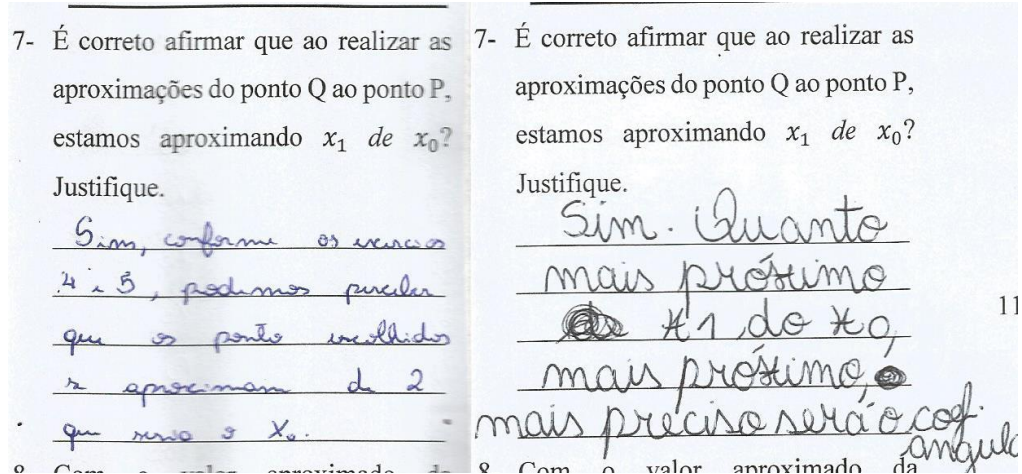 7- É correto afirmar que ao realizar as
aproximações do ponto Q ao ponto P,
estamos aproximando x₁ de x₀?
Justifique.
Sim, conforme os exercicios
4 e 5, podemos perceber
que os ponto escolhidos
se aproximam de 2
que seria o X₀.
8- Com o valor aproximado da
7- É correto afirmar que ao realizar as
aproximações do ponto Q ao ponto P,
estamos aproximando x₁ de x₀?
Justifique.
Sim. Quanto
mais próximo
x1 do x0,
mais próximo,
mais preciso será o coef.
angula
11
8 Com o valor aproximado da